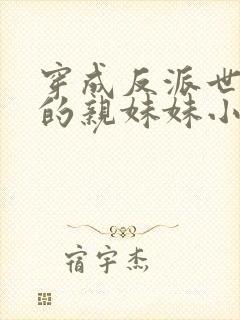 穿成反派世
的亲妹妹小
宿宇杰